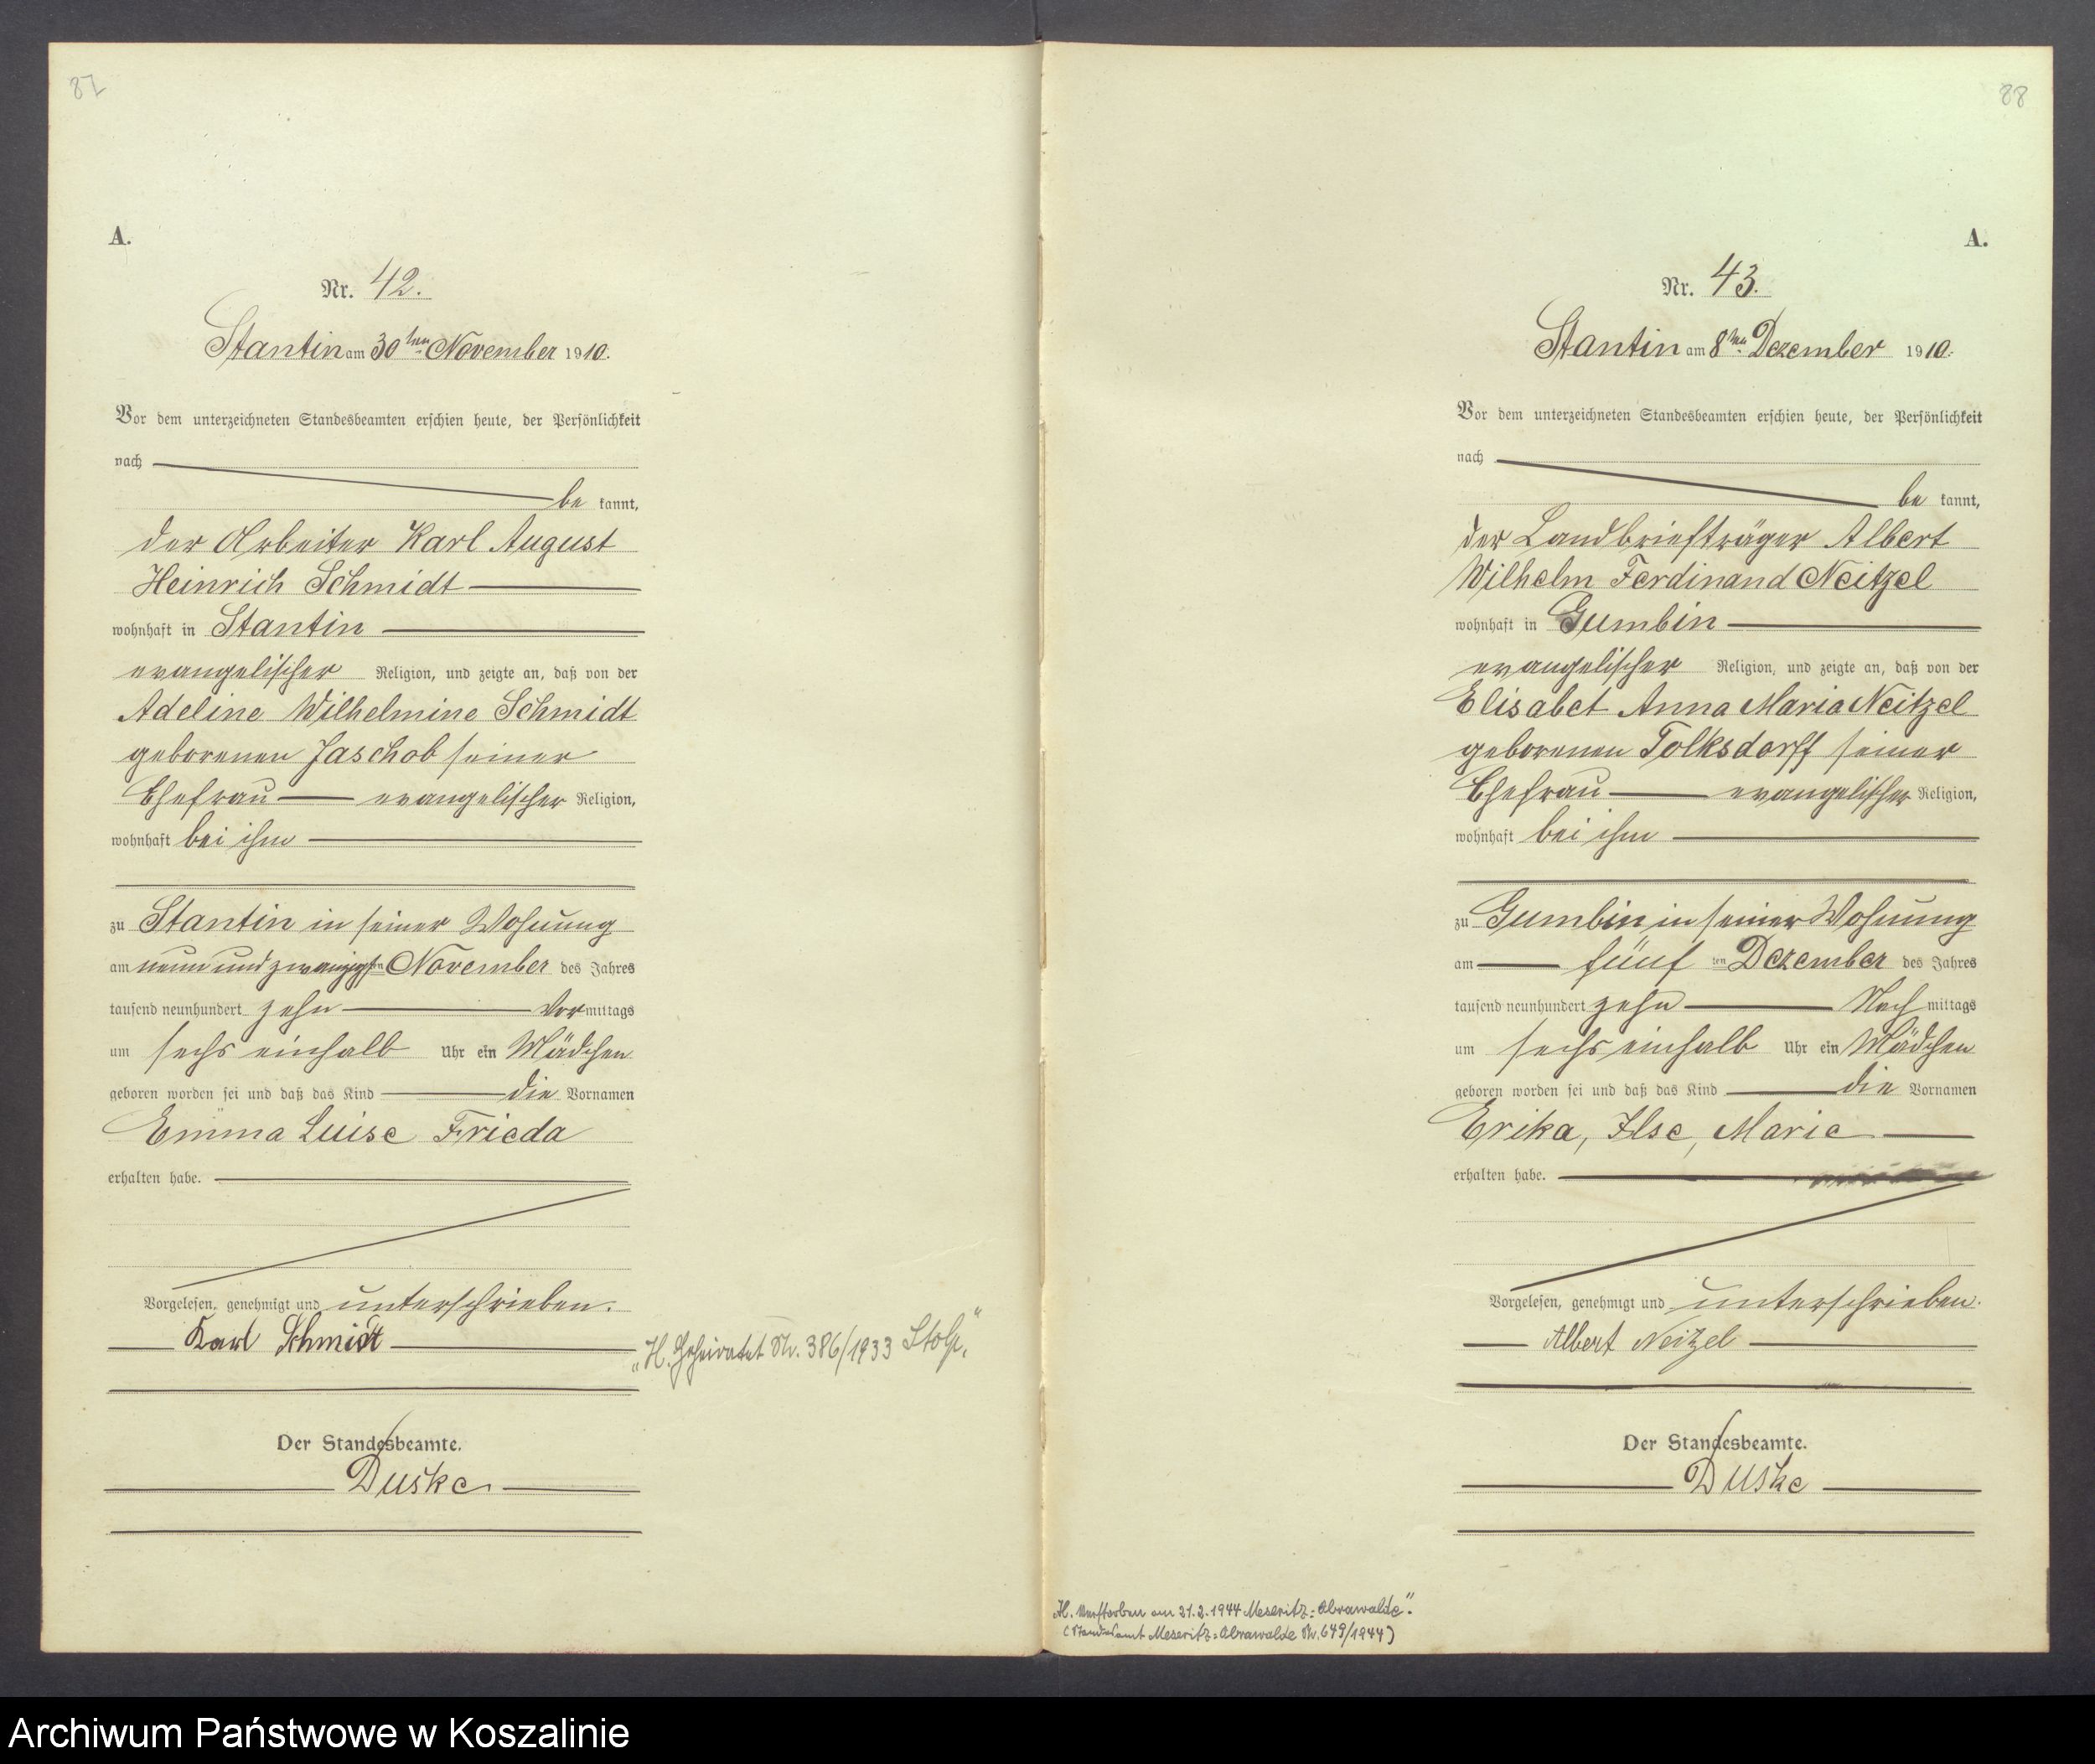 87
A.
Nr. 42.
Stantin am 30ten November 1910.
Vor dem unterzeichneten Standesbeamten erschien heute, der Persönlichkeit
nach
be kannt,
der Arbeiter Karl August
Heinrich Schmidt
wohnhaft in Stantin
evangelischer Religion, und zeigte an, daß von der
Adeline Wilhelmine Schmidt
geborenen Jaschob seiner
Ehefrau evangelischer Religion,
wohnhaft bei ihm
zu Stantin in seiner Wohnung
am neun und zwanzigsten November des Jahres
tausend neunhundert zehn Vormittags
um sechs einhalb Uhr ein Mädchen
geboren worden sei und daß das Kind die Vornamen
Emma Luise Frieda
erhalten habe.
Vorgelesen, genehmigt und unterschrieben.
Karl Schmidt
„H. Geheiratet Nr. 386/1933 Stolp."
Der Standesbeamte.
Duske
88
A.
Nr. 43.
Stantin am 8ten Dezember 1910.
Vor dem unterzeichneten Standesbeamten erschien heute, der Persönlichkeit
nach
be kannt,
der Landbriefträger Albert
Wilhelm Ferdinand Neitzel
wohnhaft in Gumbin
evangelischer Religion, und zeigte an, daß von der
Elisabet Anna Maria Neitzel
geborenen Tolksdorff seiner
Ehefrau evangelischer Religion,
wohnhaft bei ihm
zu Gumbin in seiner Wohnung
am fünf ten Dezember des Jahres
tausend neunhundert zehn Nach mittags
um sechs einhalb Uhr ein Mädchen
geboren worden sei und daß das Kind die Vornamen
Erika, Ilse, Marie
erhalten habe.
Vorgelesen, genehmigt und unterschrieben.
Albert Neitzel
Der Standesbeamte.
Duske
H. Verstorben am 21.2.1944 Meseritz=Obrawalde".
(Standesamt Meseritz=Obrawalde Nr. 649/1944)
Archiwum Państwowe w Koszalinie